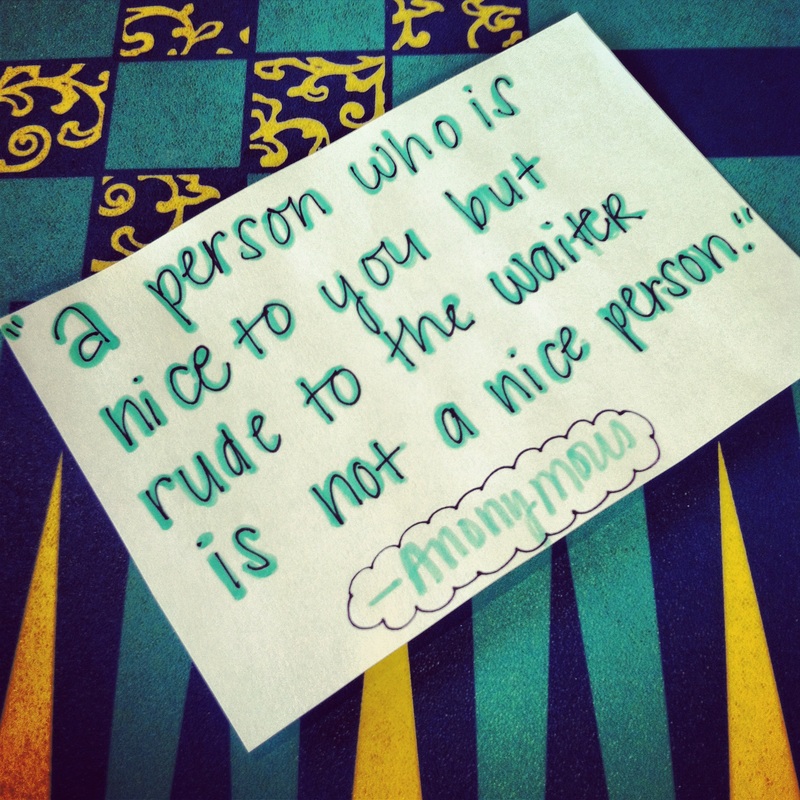 "a person who is
nice to you but
rude to the waiter
is not a nice person."
-Anonymous